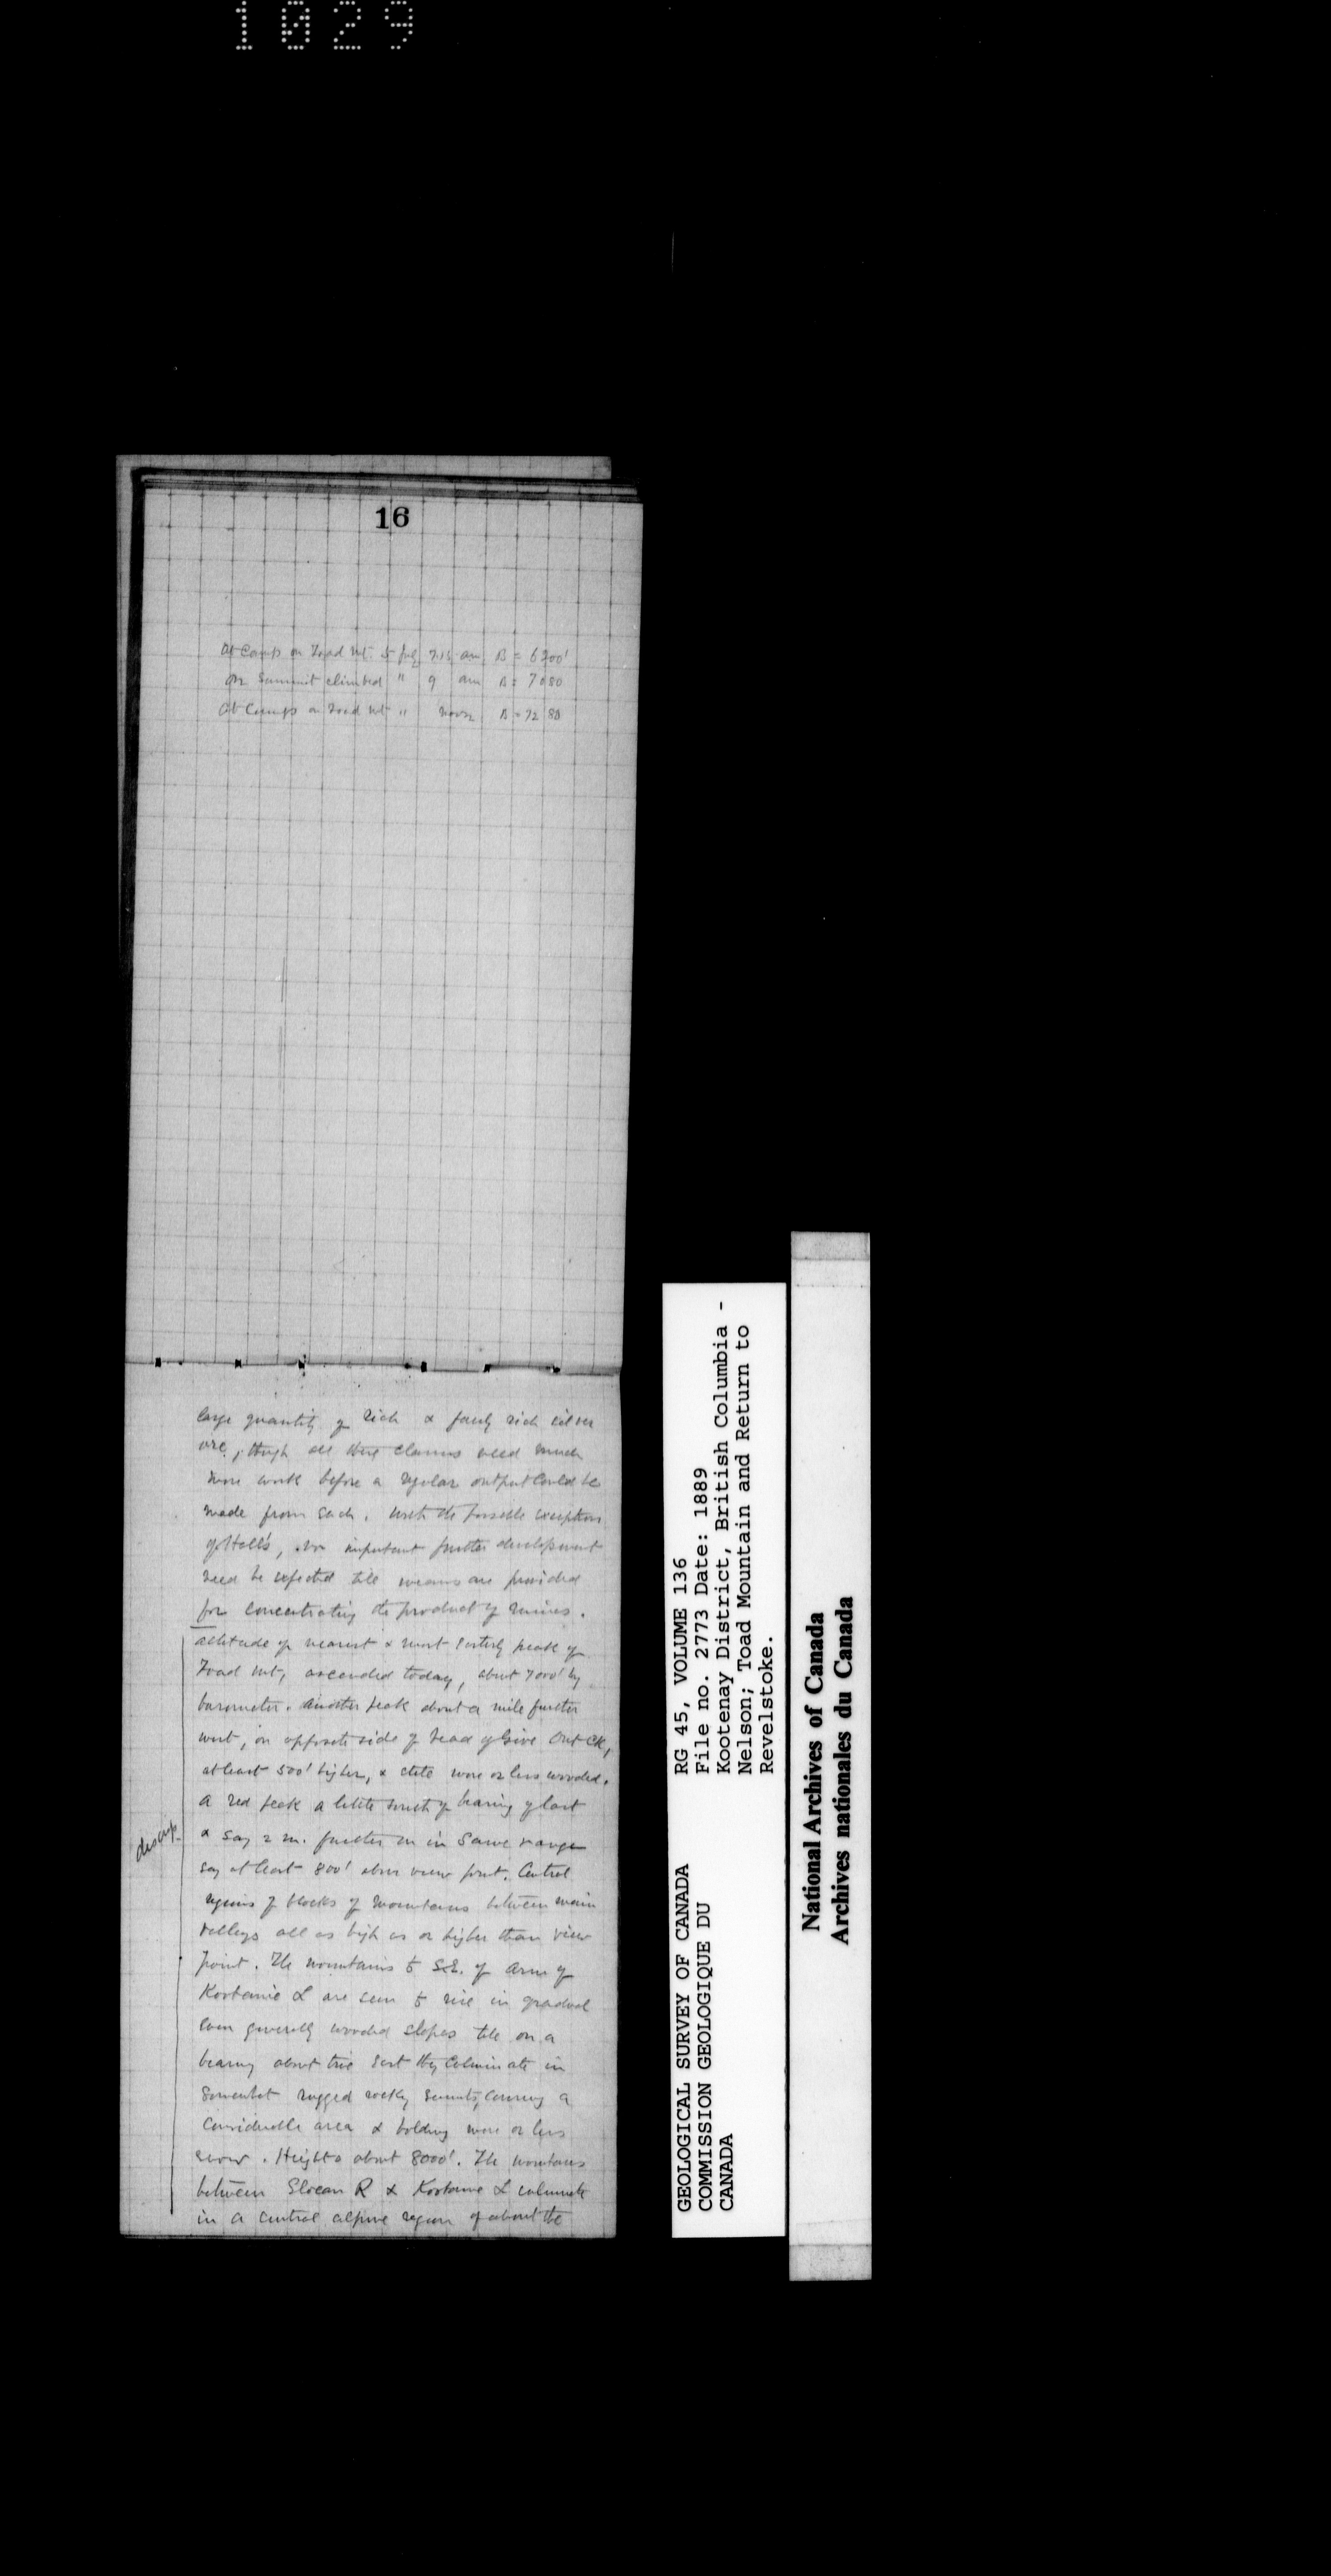 1029
16
At Camp on Toad Mt. 5 July 7.15 am B = 6300'
On Summit climbed " 9 am B = 7080
At Camp on Toad Mt " noon B = 7280
large quantity of rich & fairly rich silver
ore, though all these claims need much
more work before a regular output could be
made from each. With the possible exception
of Hall's, no important further development
need be expected till means are provided
for concentrating the product of mines.
Altitude of nearest & most easterly peak of
Toad Mt, ascended today, about 7000' by
barometer. Another peak about a mile further
west, on opposite side of head of Give Out Ck,
at least 500' higher, & more or less wooded.
A red peak a little south of bearing of last
& say 2 m. further on in same range
say at least 800' above view point. Central
regions of blocks of mountains between main
valleys all as high as or higher than view
point. The mountains to S.E. of arm of
Kootanie L are seen to rise in gradual
even generally wooded slopes till on a
bearing about true East they culminate in
somewhat rugged rocky summits, covering a
considerable area & holding more or less
snow. Heights about 8000'. The mountains
between Slocan R & Kootanie L culminate
in a central alpine region of about the
descrip.
GEOLOGICAL SURVEY OF CANADA
COMMISSION GEOLOGIQUE DU
CANADA
RG 45, VOLUME 136
File no. 2773 Date: 1889
Kootenay District, British Columbia -
Nelson; Toad Mountain and Return to
Revelstoke.
National Archives of Canada
Archives nationales du Canada